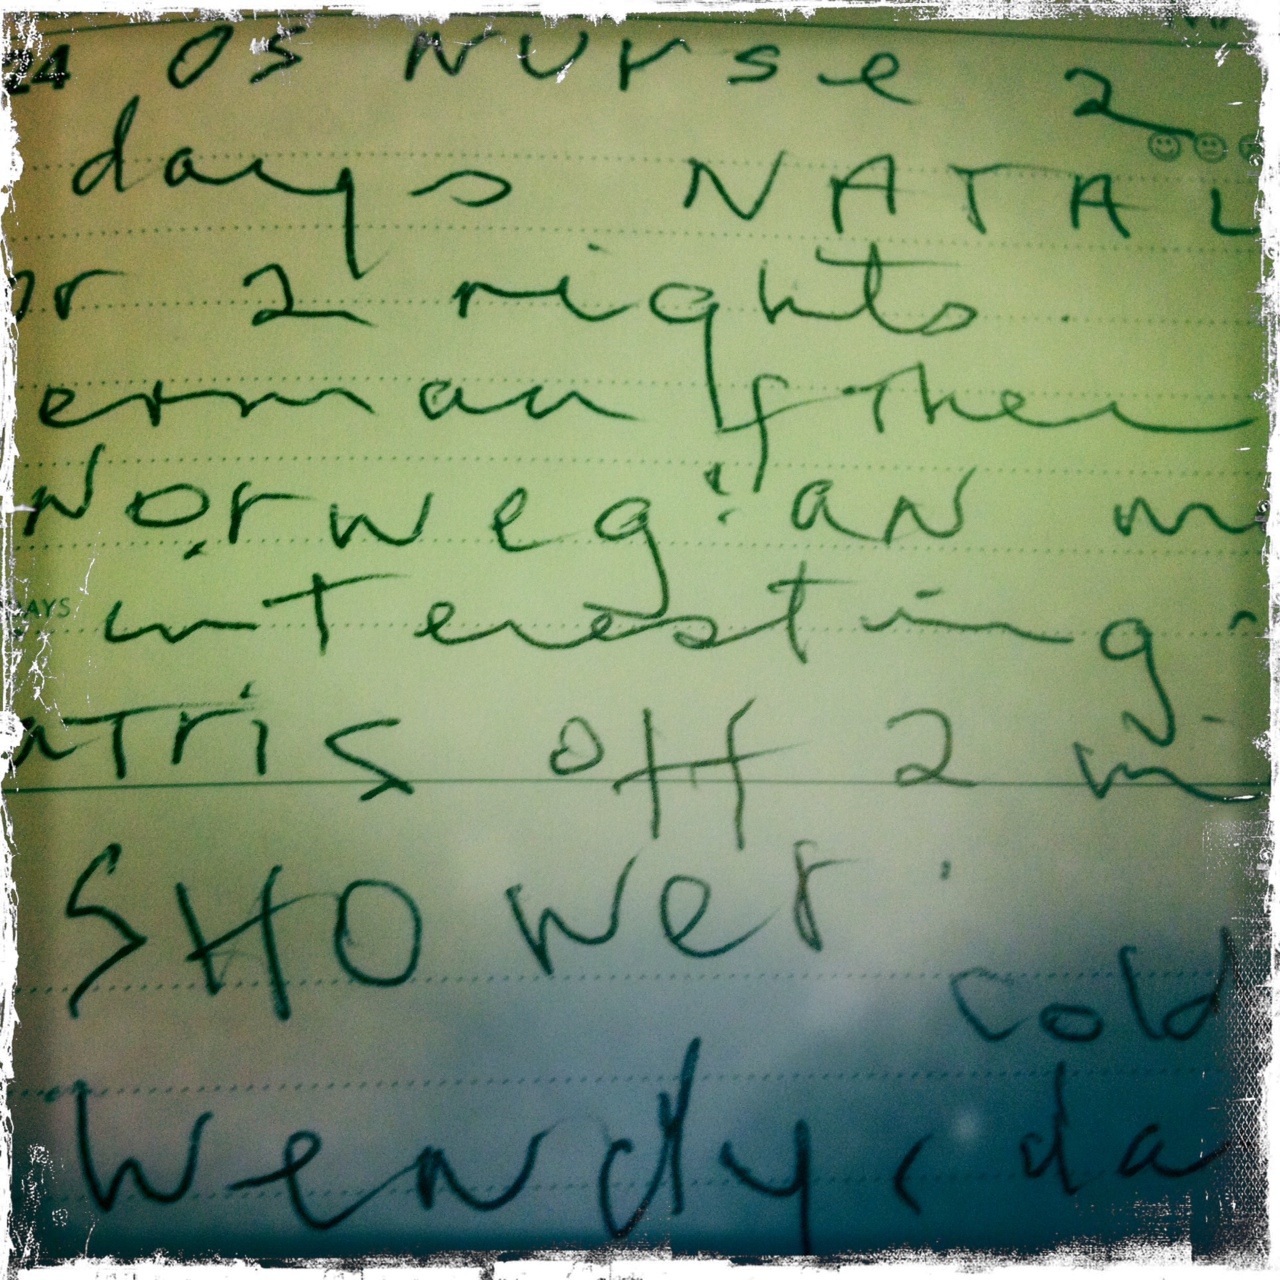 24 OS Nurse 2
days NATAL
or 2 nights.
erman if then
Norwegian m
AYS interesting
atris off 2 in
SHOWer.
cold
Wendy, da